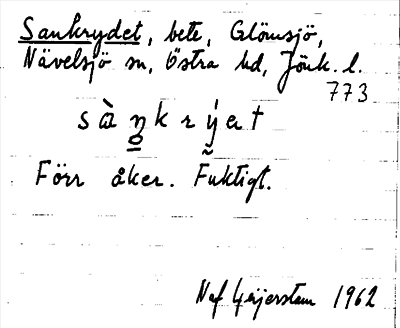 Sankrydet, bete, Glömsjö,
Nävelsjö sn, Östra hd, Jönk. l.
773
sàŋkrýet
Förr åker. Fuktigt.
Naf Geijerstam 1962